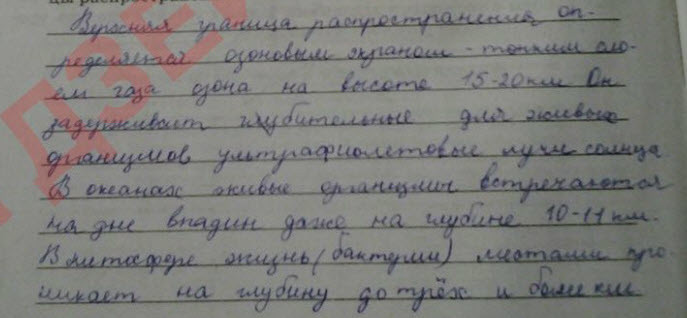 цы распростране
Верхняя граница распространения оп-
ределяется озоновым экраном - тонким сло-
ем газа озона на высоте 15-20 км Он
задерживает губительные для живых
организмов ультрафиолетовые лучи солнца
В океанах живые организмы встречаются
на дне впадин даже на глубине 10-11 км.
В литосфере жизнь (бактерии) местами про-
никает на глубину до трёх и более км